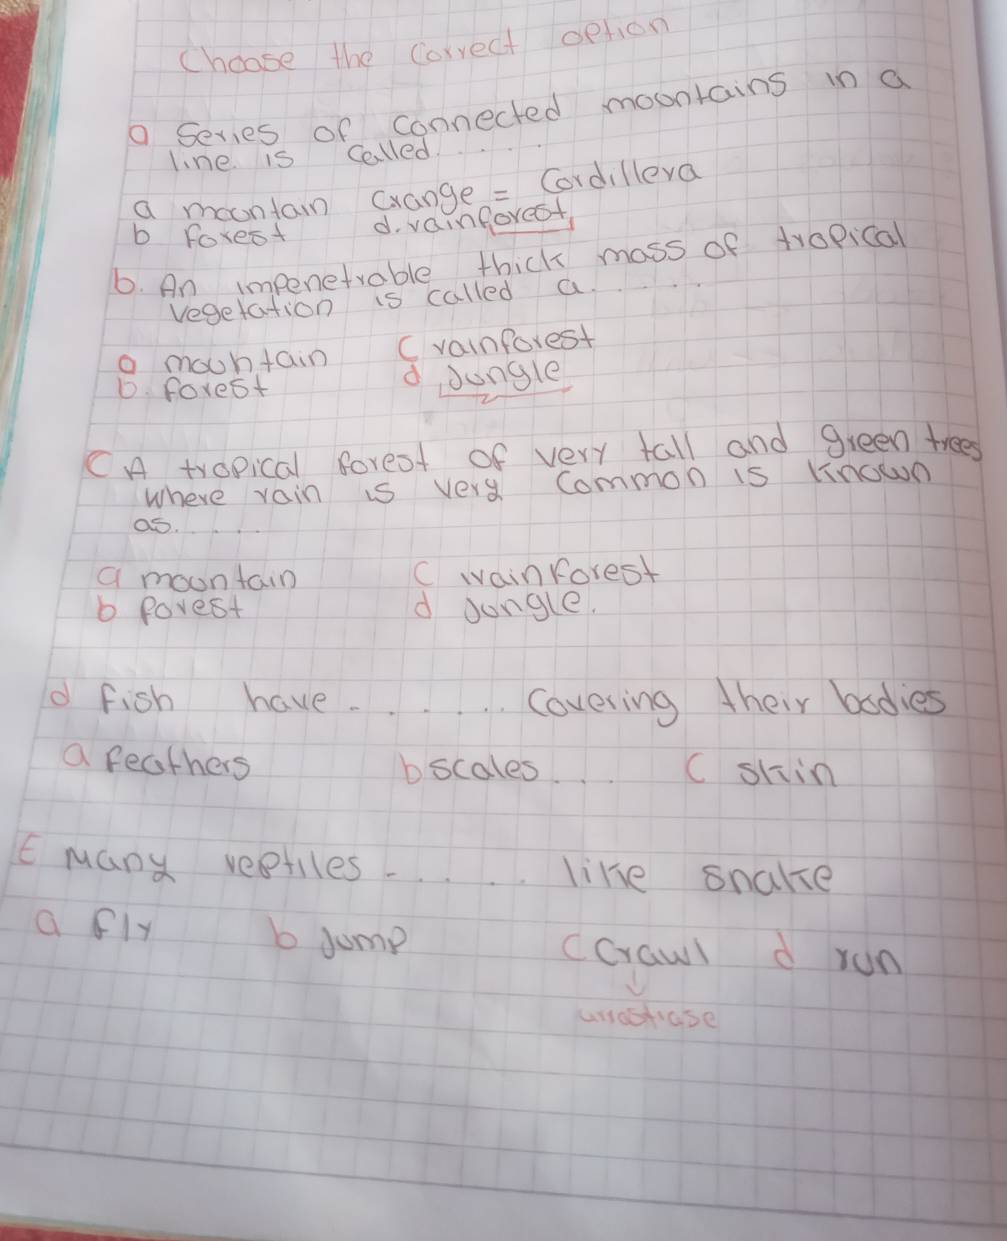 Choose the correct option
a Series of connected mountains in a
line. is called.....
a mountain Crange = Cordillera
b forest d. rainforest
b. An impenetrable thick mass of tropical
vegetation is called a......
a mountain C rainforest
b. forest d Jungle
C A tropical forest of very tall and green trees
where rain is very common is known
as.....
a mountain C rainforest
b forest d Jungle.
d fish have...... Covering their bodies
a feathers b scales... C skin
E Many reptiles..... like snake
a fly b Jump C Crawl d run
arrastrase